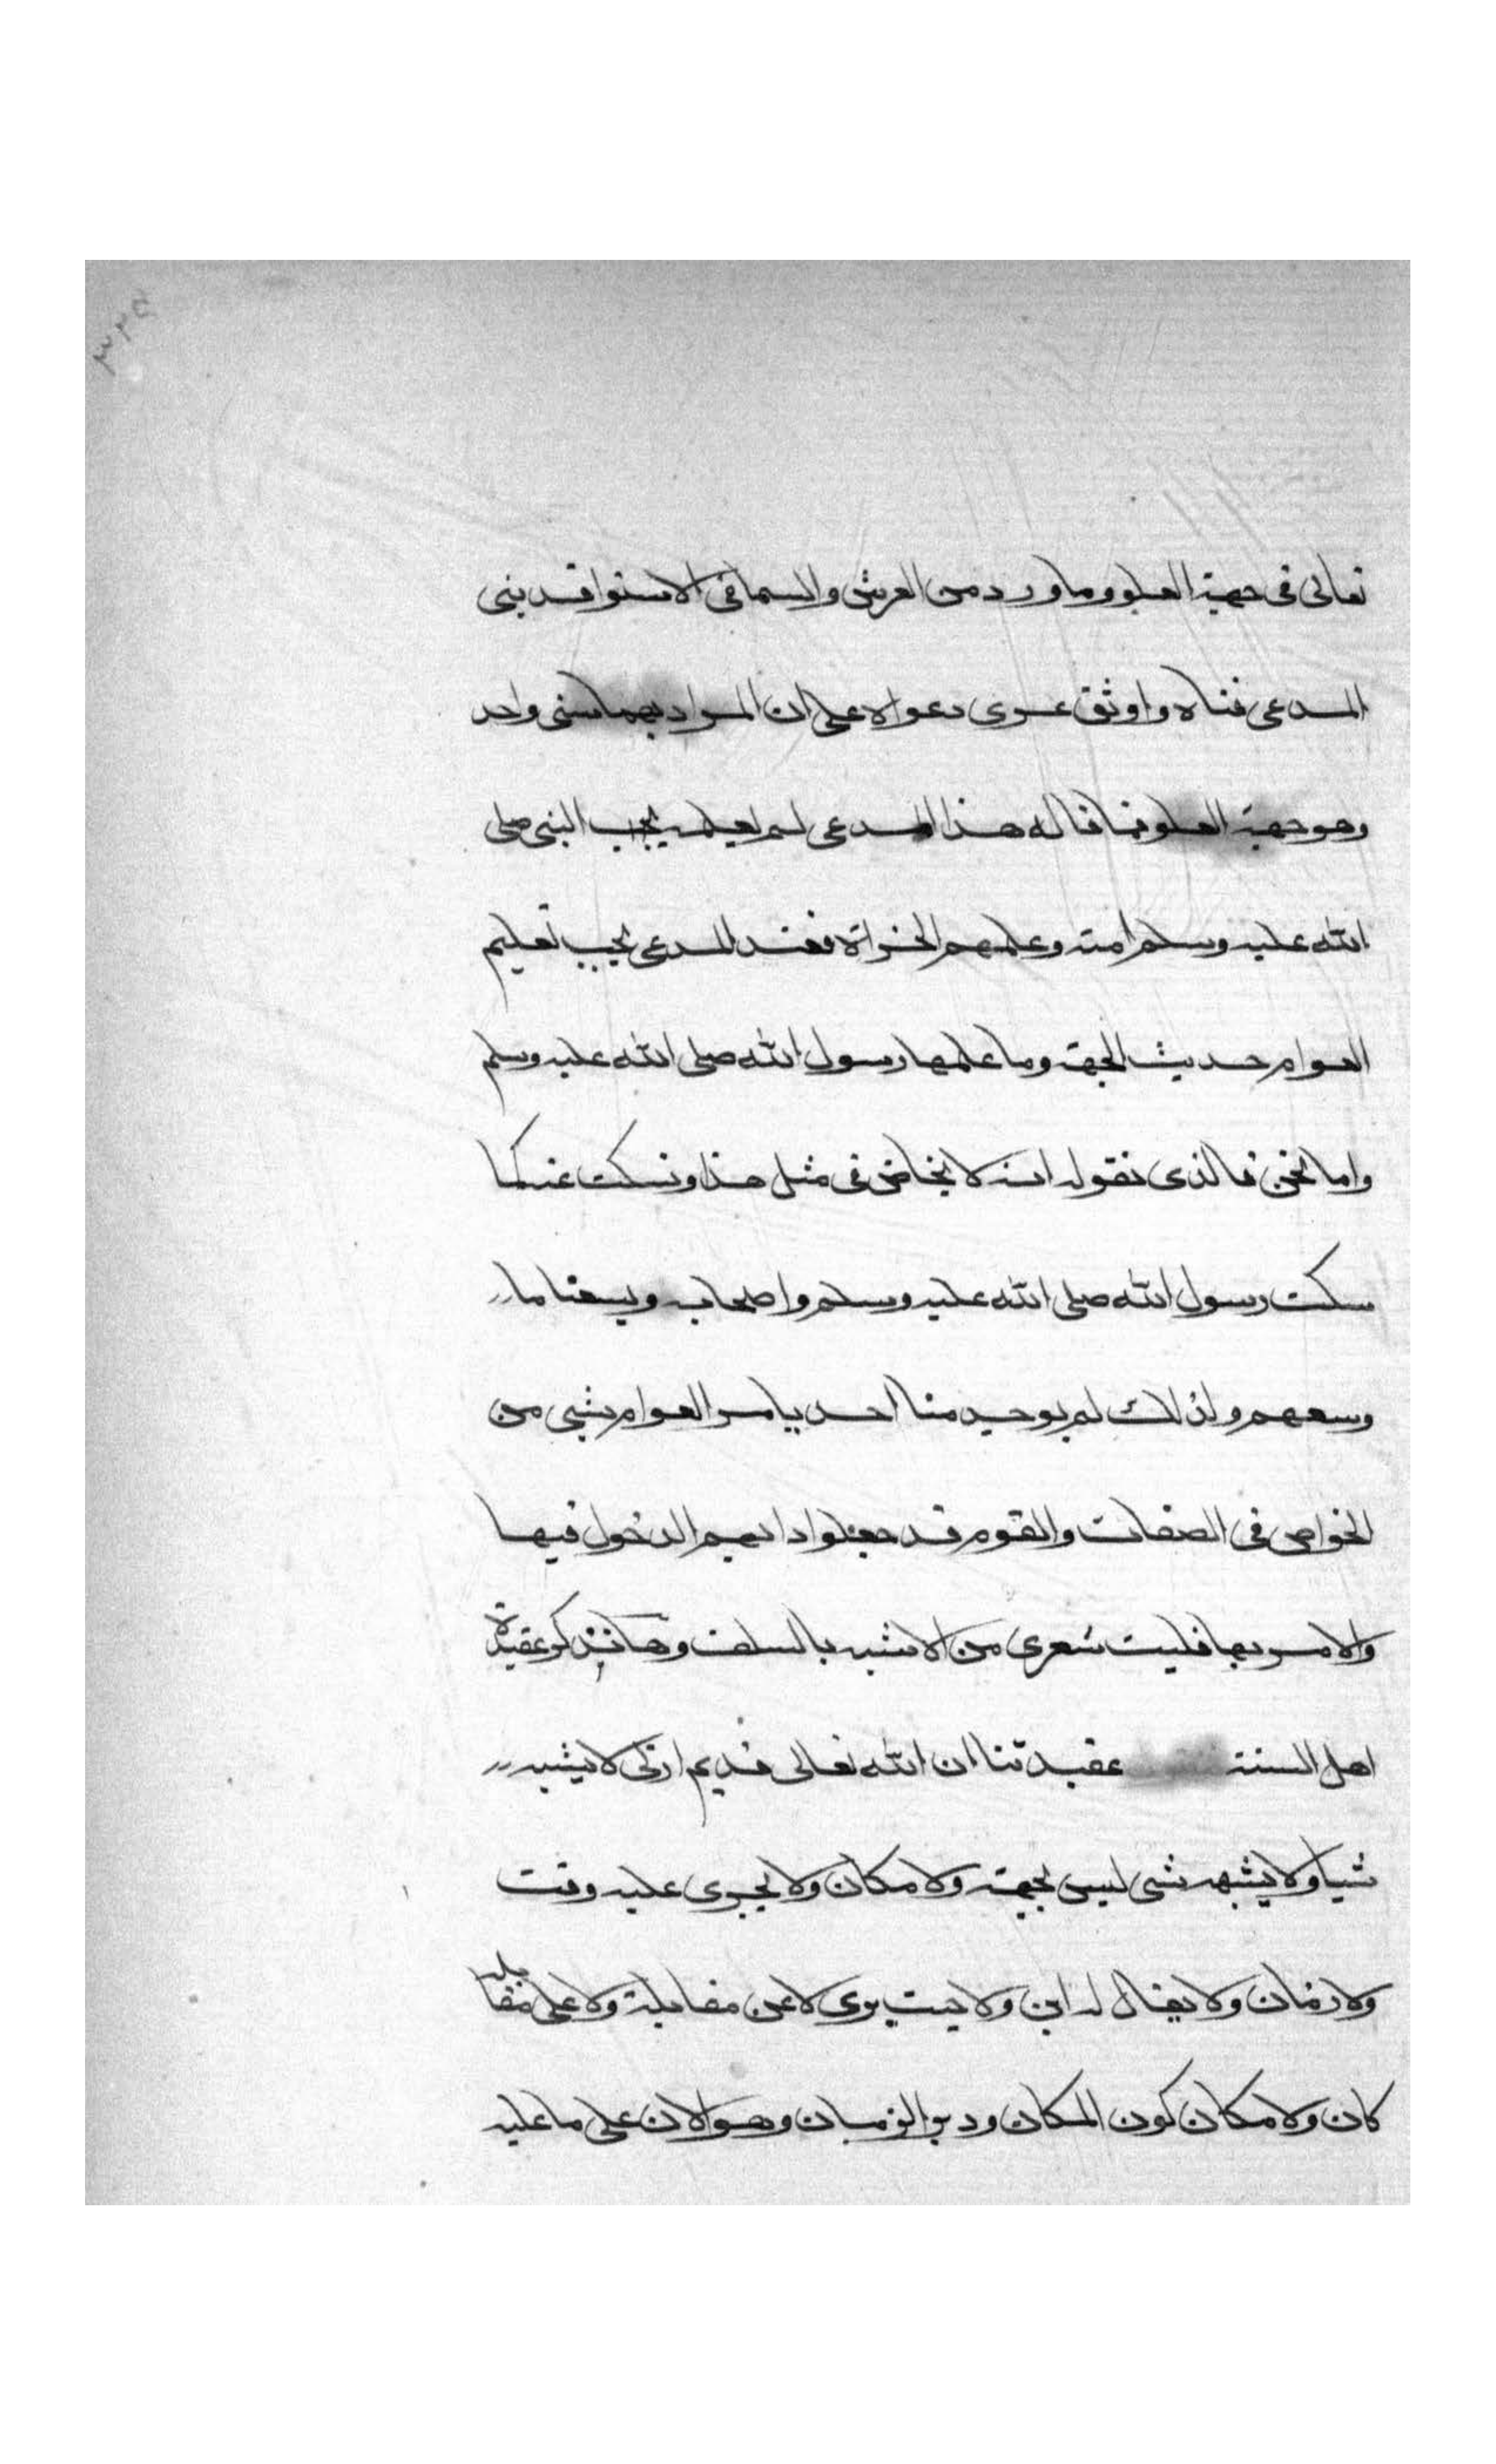 ٣٢٥
تعالى فى جهة العلو وما ورد من العرش والسما فى الاستوا قد بنى
المدعى فناه واوثق عرى دعواه على ان المراد بهما شى واحد
وهو جهة العلو فما قاله هذا المدعى لم يعلمه يجب النبى صلى
الله عليه وسلم امته وعلمهم الخراة فعند المدعى يجب تعليم
العوام حديث الجهة وما علمها رسول الله صلى الله عليه وسلم
واما نحن فالذى نقوله انه لا يخاض فى مثل هذا ونسكت عنه كما
سكت رسول الله صلى الله عليه وسلم واصحابه ويسعنا ما
وسعهم ولذلك لم يوجد منا احد يامر العوام بشى من
الخواص فى الصفات والقوم قد جعلوا دابهم الدخول فيها
والامر بها فليت شعرى من الاشبه بالسلف وها نذكر عقيدة
اهل السنة عقيدتنا ان الله تعالى قديم ازلى لا يشبه
شيا ولا يشبهه شى ليس بجهة ولا مكان ولا يجرى عليه وقت
ولا زمان ولا يقال له اين ولا حيث يرى لا عن مقابلة ولا على مقابله
كان ولا مكان كون المكان ودبر الزمان وهو الان على ما عليه